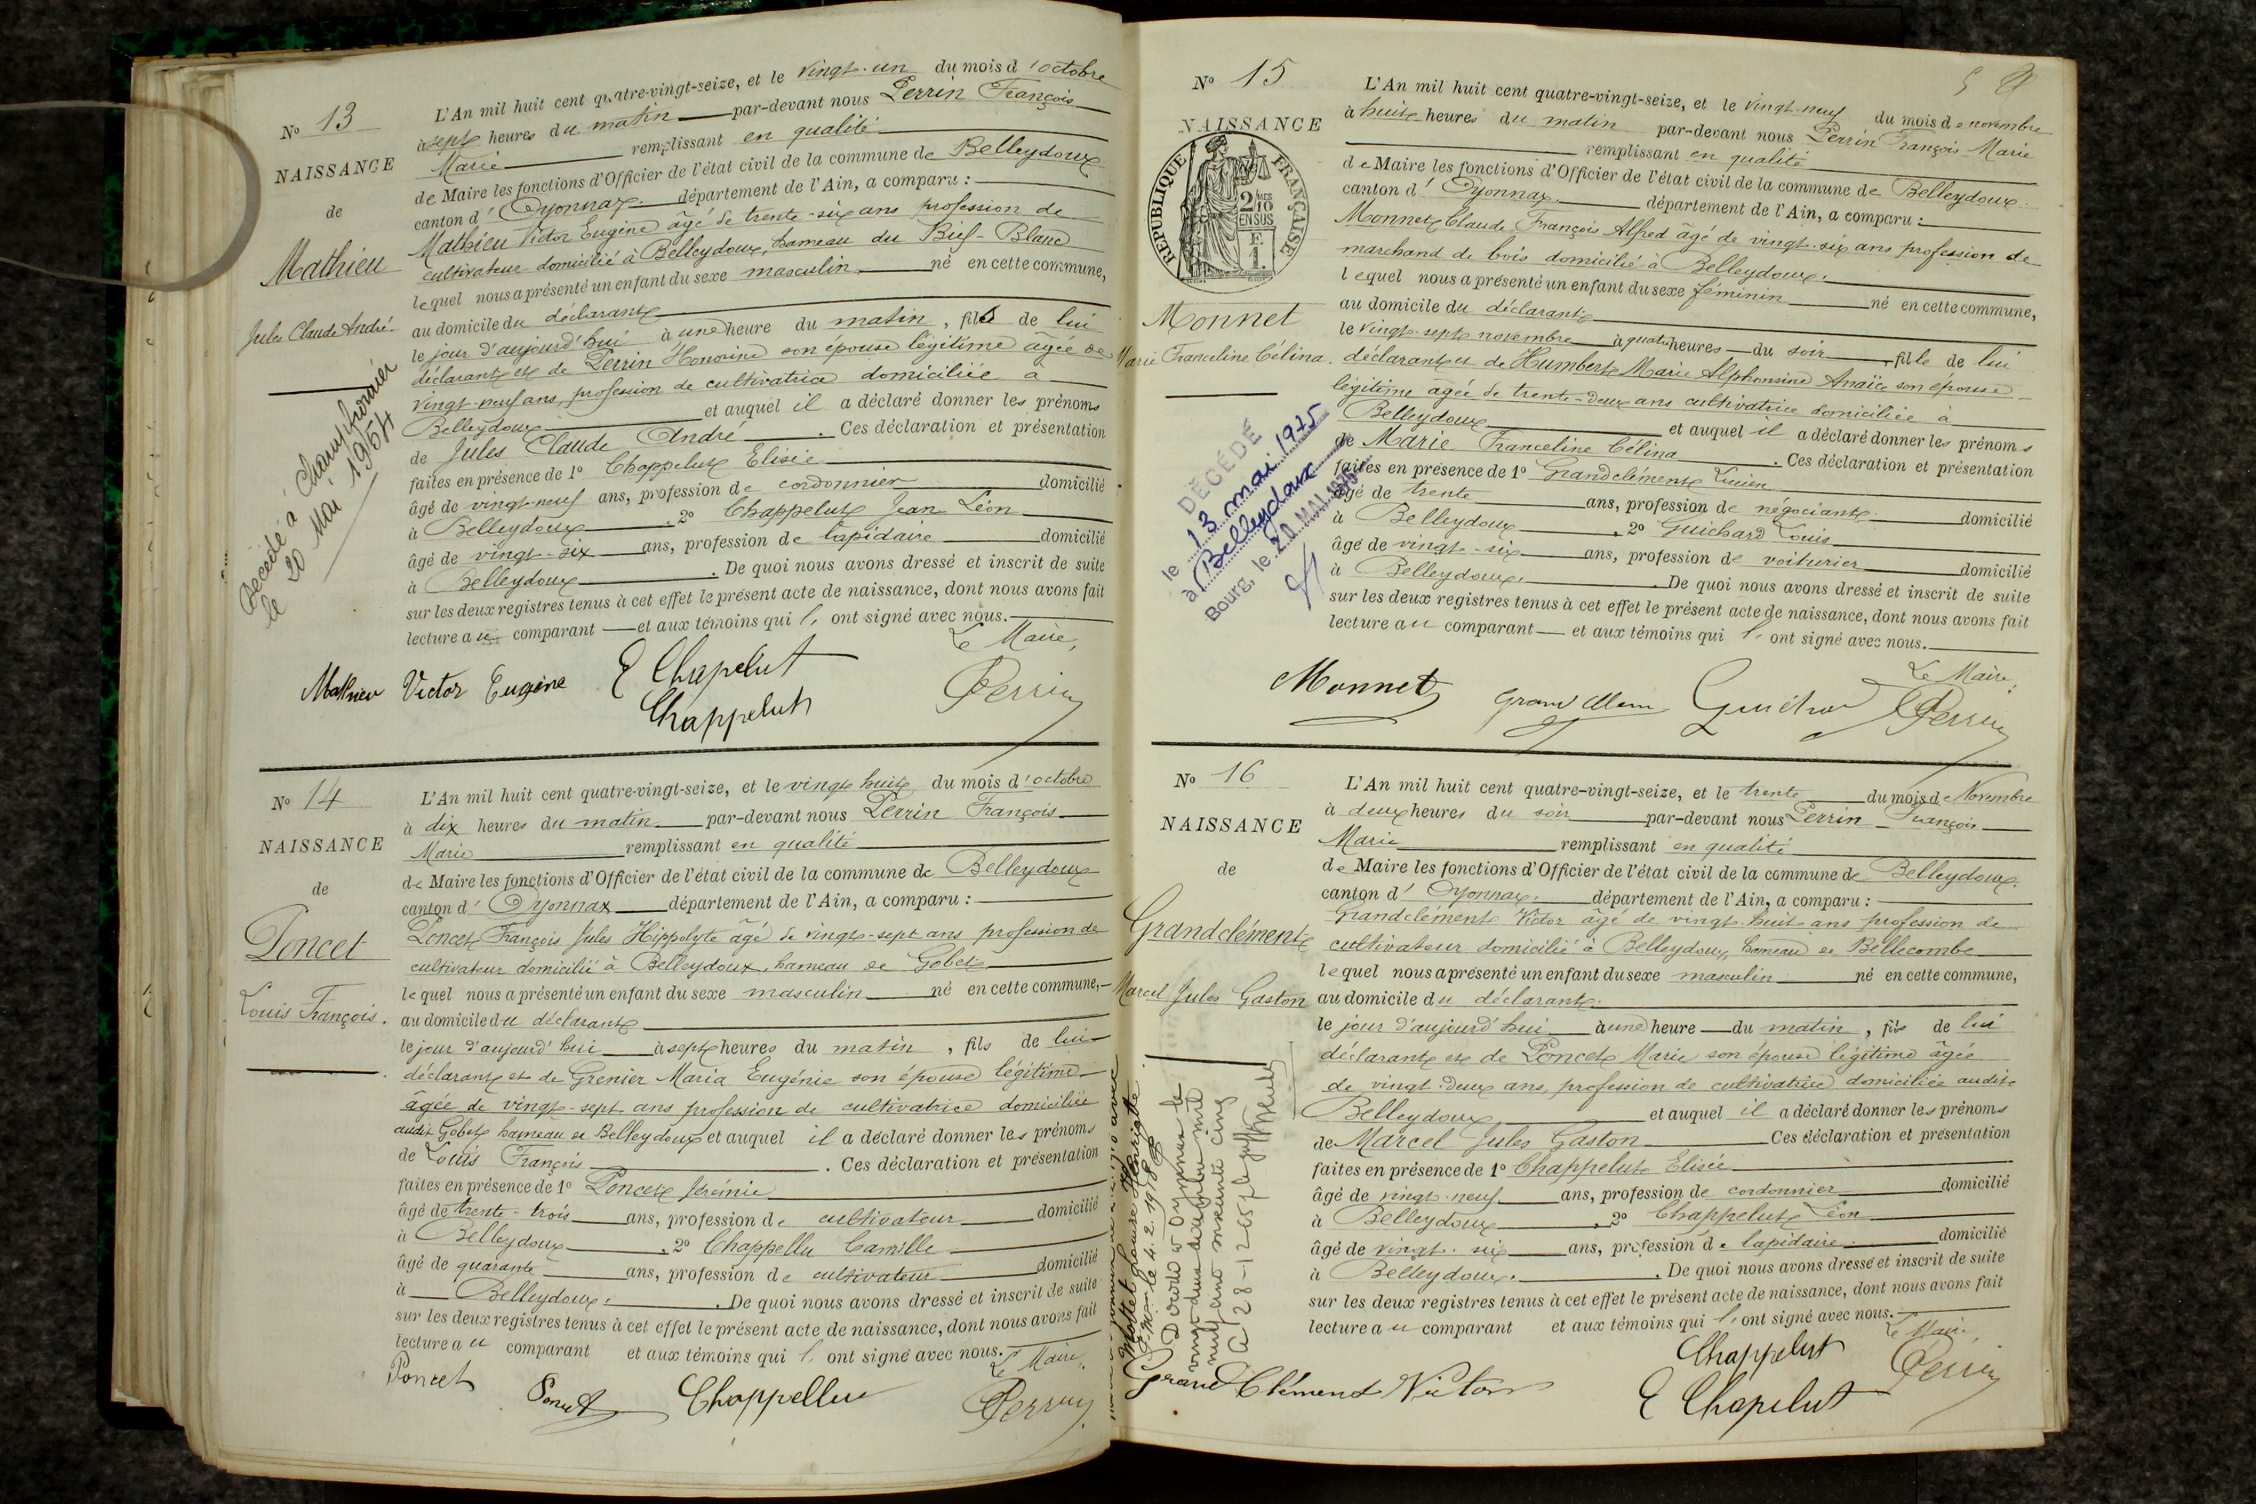 N° 13
NAISSANCE
de
Mathieu
Jules Claude André
Décédé à Champfromier
le 20 Mai 1964
L'An mil huit cent quatre-vingt-seize, et le vingt-un du mois d'octobre
à sept heures du matin par-devant nous Perrin François
Marie remplissant en qualité
de Maire les fonctions d'Officier de l'état civil de la commune de Belleydoux
canton d'Oyonnax département de l'Ain, a comparu :
Mathieu Victor Eugène âgé de trente-six ans profession de
cultivateur domicilié à Belleydoux, hameau du Bief-Blanc
lequel nous a présenté un enfant du sexe masculin né en cette commune,
au domicile du déclarant
le jour d'aujourd'hui à une heure du matin, fils de lui
déclarant et de Perrin Honorine son épouse légitime âgée de
vingt-neuf ans, profession de cultivatrice domiciliée à
Belleydoux et auquel il a déclaré donner les prénoms
de Jules Claude André. Ces déclaration et présentation
faites en présence de 1° Chappelut Elisée
âgé de vingt-neuf ans, profession de cordonnier domicilié
à Belleydoux. 2° Chappelut Jean Léon
âgé de vingt-six ans, profession de lapidaire domicilié
à Belleydoux. De quoi nous avons dressé et inscrit de suite
sur les deux registres tenus à cet effet le présent acte de naissance, dont nous avons fait
lecture au comparant et aux témoins qui l' ont signé avec nous.
Le Maire,
Mathieu Victor Eugène E Chapelut Perrin
Chappelut
N° 14
NAISSANCE
de
Poncet
Louis François.
L'An mil huit cent quatre-vingt-seize, et le vingt huit du mois d'octobre
à dix heures du matin par-devant nous Perrin François
Marie remplissant en qualité
de Maire les fonctions d'Officier de l'état civil de la commune de Belleydoux
canton d'Oyonnax département de l'Ain, a comparu :
Poncet François Jules Hippolyte âgé de vingt-sept ans profession de
cultivateur domicilié à Belleydoux, hameau de Gobet
lequel nous a présenté un enfant du sexe masculin né en cette commune,
au domicile du déclarant
le jour d'aujourd'hui à sept heures du matin, fils de lui
déclarant et de Grenier Maria Eugénie son épouse légitime
âgée de vingt-sept ans profession de cultivatrice domiciliée
audit Gobet hameau de Belleydoux et auquel il a déclaré donner les prénoms
de Louis François. Ces déclaration et présentation
faites en présence de 1° Poncet Jérémie
âgé de trente-trois ans, profession de cultivateur domicilié
à Belleydoux. 2° Chappellu Camille
âgé de quarante ans, profession de cultivateur domicilié
à Belleydoux. De quoi nous avons dressé et inscrit de suite
sur les deux registres tenus à cet effet le présent acte de naissance, dont nous avons fait
lecture au comparant et aux témoins qui l' ont signé avec nous.
Le Maire,
Poncet Poncet Chappellu Perrin
N° 15
NAISSANCE
RÉPUBLIQUE FRANÇAISE
2/10 MES
EN SUS
F.
1.
Monnet
Marie Franceline Célina.
DÉCÉDÉ
le 13 mai 1975
à Belleydoux
Bourg, le 20 MAI 1975
L'An mil huit cent quatre-vingt-seize, et le vingt-neuf du mois de novembre
à huit heures du matin par-devant nous Perrin François Marie
remplissant en qualité
de Maire les fonctions d'Officier de l'état civil de la commune de Belleydoux
canton d'Oyonnax département de l'Ain, a comparu :
Monnet Claude François Alfred âgé de vingt-six ans profession de
marchand de bois domicilié à Belleydoux.
lequel nous a présenté un enfant du sexe féminin né en cette commune,
au domicile du déclarant
le vingt-sept novembre à quatre heures du soir, fille de lui
déclarant et de Humbert Marie Alphonsine Anaïs son épouse
légitime âgée de trente-deux ans cultivatrice domiciliée à
Belleydoux et auquel il a déclaré donner les prénoms
de Marie Franceline Célina. Ces déclaration et présentation
faites en présence de 1° Grandclément Lucien
âgé de trente ans, profession de négociant domicilié
à Belleydoux. 2° Guichard Louis
âgé de vingt-six ans, profession de voiturier domicilié
à Belleydoux. De quoi nous avons dressé et inscrit de suite
sur les deux registres tenus à cet effet le présent acte de naissance, dont nous avons fait
lecture au comparant et aux témoins qui l' ont signé avec nous.
Le Maire,
Monnet Perrin
N° 16
NAISSANCE
de
Grandclément
Marcel Jules Gaston
Mottet Louise Henriette
le 4.2.1918
Décédé à Oyonnax le
vingt-deux décembre mil
neuf cent soixante cinq
L'An mil huit cent quatre-vingt-seize, et le trente du mois de Novembre
à deux heures du soir par-devant nous Perrin François
Marie remplissant en qualité
de Maire les fonctions d'Officier de l'état civil de la commune de Belleydoux.
canton d'Oyonnax. département de l'Ain, a comparu :
Grandclément Victor âgé de vingt-huit ans profession de
cultivateur domicilié à Belleydoux, hameau de Bellecombe
lequel nous a présenté un enfant du sexe masculin né en cette commune,
au domicile du déclarant.
le jour d'aujourd'hui à une heure du matin, fils de lui
déclarant et de Poncet Marie son épouse légitime âgée
de vingt-deux ans, profession de cultivatrice domiciliée audit
Belleydoux et auquel il a déclaré donner les prénoms
de Marcel Jules Gaston Ces déclaration et présentation
faites en présence de 1° Chappelut Elisée
âgé de vingt-neuf ans, profession de cordonnier domicilié
à Belleydoux. 2° Chappelut Léon
âgé de vingt-six ans, profession de lapidaire domicilié
à Belleydoux. De quoi nous avons dressé et inscrit de suite
sur les deux registres tenus à cet effet le présent acte de naissance, dont nous avons fait
lecture au comparant et aux témoins qui l' ont signé avec nous.
Le Maire,
Grand Clément Victor Chappelut Perrin
E Chapelut